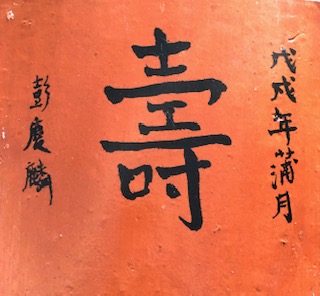 戊戌年蒲月
壽
彭慶麟